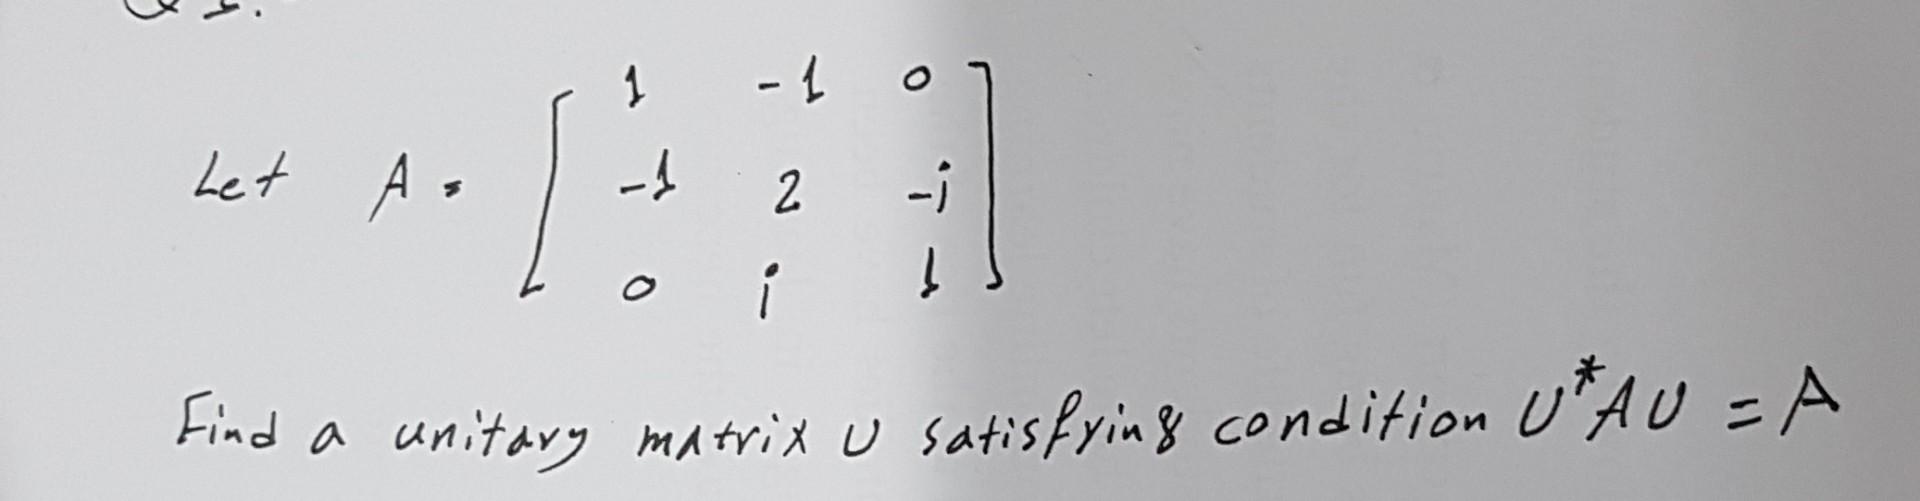 1 -1 0
Let A = -1 2 -i
0 i 1
Find a unitary matrix U satisfying condition U*AU = A